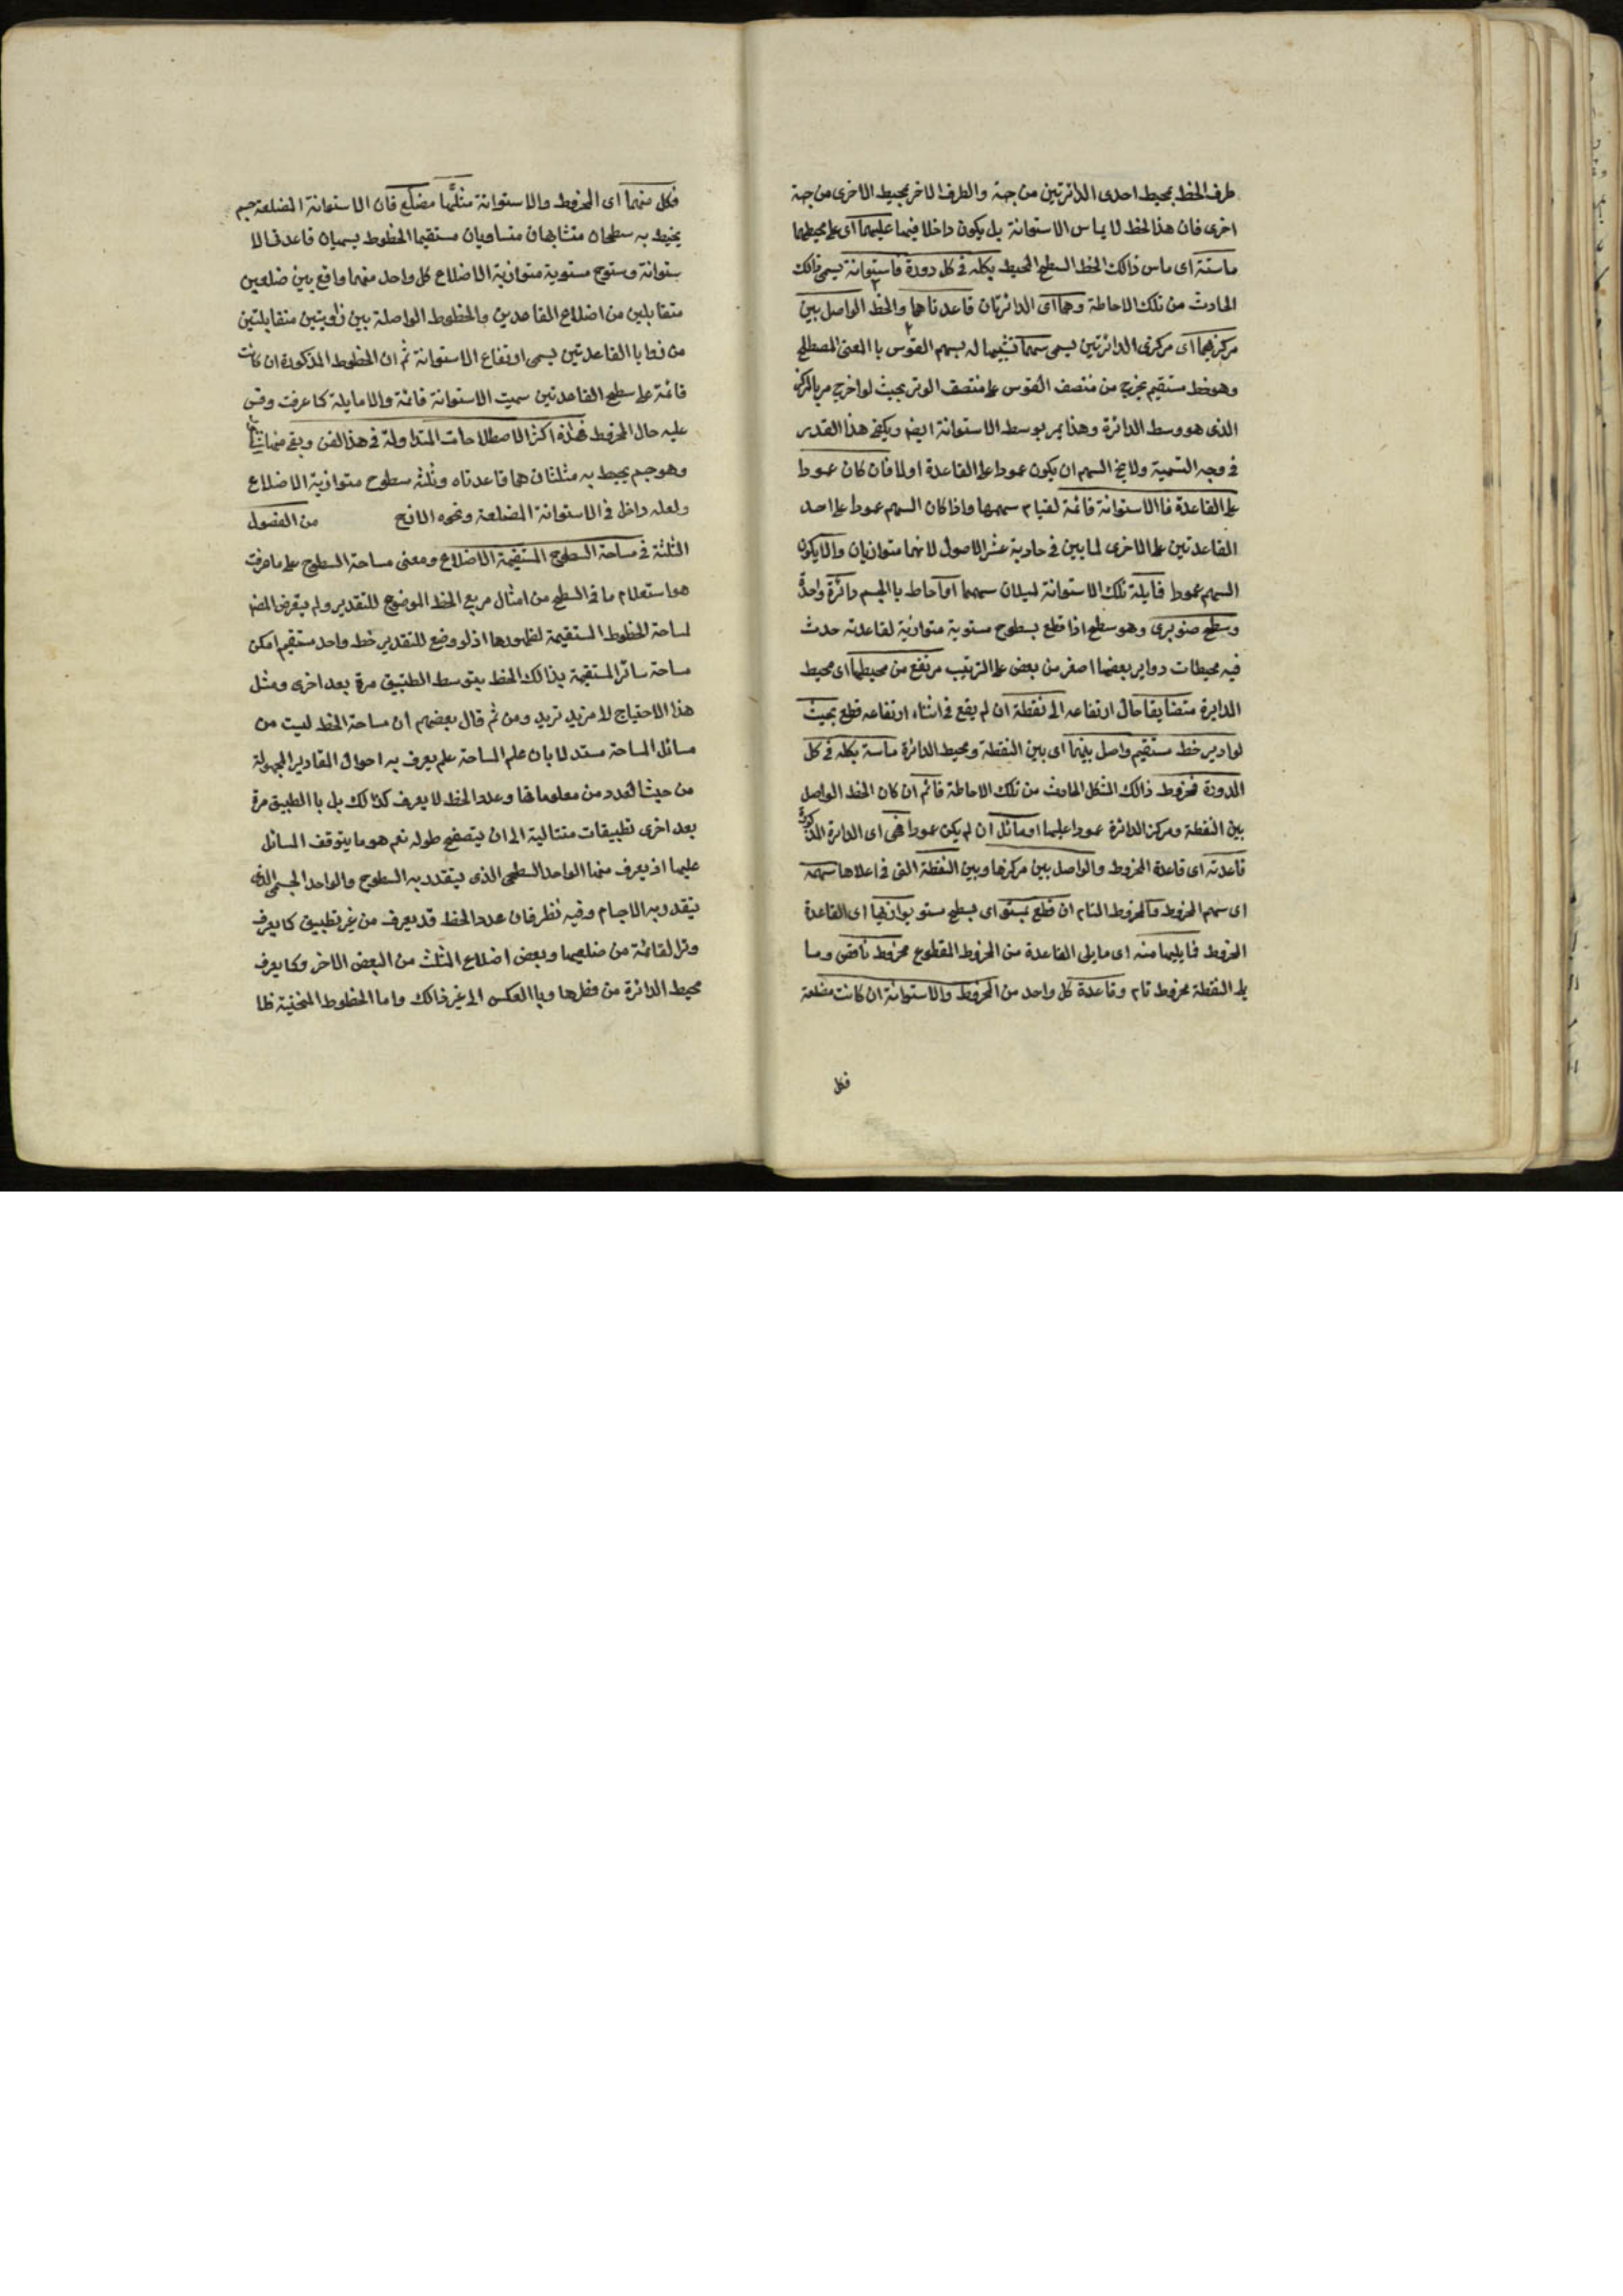 طرف الخط بمحيط احدى الدائرتين من جهة والطرف الاخر بمحيط الاخرى من جهة
اخرى فان هذا الخط لا يماس الاستوانة بل يكون داخلا فيما عليهما اى على محيطهما
ماسته اى ماس ذالك الخط السطح المحيط بكله فى كل دورة فاستوانة يسمى ذالك
الحادث من تلك الاحاطة وهما اى الدائرتان قاعدتاهما والخط الواصل بين
مركزيهما اى مركزى الدائرتين يسمى سهما تشبيها له بسهم القوس با المعنى المصطلح
وهو خط مستقيم يخرج من منتصف القوس على منتصف الوتر بحيث لو اخرج مر بالمركز
الذى هو وسط الدائرة وهذا يمر بوسط الاستوانة ايضه ويكفى هذا القدر
فى وجه التسمية ولا يخ السهم ان يكون عمودا على القاعدة اولا فان كان عمودا
على القاعدة فاالاستوانة قائمة لقيام سهمها واذا كان السهم عمودا على احد
القاعدتين على الاخرى لما بين فى حادية عشر الاصول لانهما متوازيان والا يكون
السهم عمودا فايلة تلك الاستوانة لميلان سهمها او احاط با الجسم دائرة واحدة
وسطح صنوبرى وهو سطح اذا قطع بسطوح مستوية متوازية لقاعدته حدث
فيه محيطات دواير بعضها اصغر من بعض على الترتيب مرتفع من محيطها اى محيط
الدايرة متضايقا حال ارتفاعه الى نقطة ان لم يقع فى اثناء ارتفاعه قطع بحيث
لو ادير خط مستقيم واصل بينهما اى بين النقطة ومحيط الدائرة ماسة بكله فى كل
الدورة فمخروط ذالك الشكل الحادث من تلك الاحاطة قائم ان كان الخط الواصل
بين النقطة ومركز الدائرة عمودا عليها او مائل ان لم يكن عمودا هى اى الدايرة المذكورة
قاعدته اى قاعدة المخروط والواصل بين مركزها وبين النقطة التى فى اعلاها سهمه
اى سهم المخروط والمخروط التام ان قطع بمستو اى بسطح مستو يوازيها اى القاعدة
المخروط فايليها منه اى ما يلى القاعدة من المخروط المقطوع مخروط ناقص وما
يلى النقطة مخروط تام وقاعدة كل واحد من المخروط والاستوانة ان كانت مضلعة
فكل
فكل منهما اى المخروط والاستوانة مثلها مضلع فان الاستوانة المضلعة جسم
يحيط به سطحان متشابهان متساويان مستقيما الخطوط يسميان قاعدتى الا
ستوانة وسطوح مستوية متوازية الاضلاع كل واحد منهما واقع بين ضلعين
متقابلين من اضلاع القاعدين والخطوط الواصلة بين زاويتين متقابلتين
من زوايا القاعدتين يسمى ارتفاع الاستوانة ثم ان الخطوط المذكورة ان كانت
قائمة على سطح القاعدتين سميت الاستوانة قائمة والا مايلة كما عرفت وقس
عليه حال المخروط فهذه اكثر الاصطلاحات المتداولة فى هذا الفن وبقى منها
وهو جسم يحيط به مثلثان هما قاعدتاه وثلثه سطوح متوازية الاضلاع
ولعله داخل فى الاستوانة المضلعة ونحوه الافح من الفصول
الثلثة فى مساحة السطوح المستقيمة الاضلاع ومعنى مساحة السطوح على ما عرفت
هو استعلام ما فى السطح من امثال مربع الخط الموضوع للتقدير ولم يتعرض المصه
لمساحة الخطوط المستقيمة لظهورها اذ لو وضع للتقدير خط واحد مستقيم امكن
مساحة سائر المستقيمة بذالك الخط بتوسط التطبيق مرة بعد اخرى ومثل
هذا الاحتياج لا مزيد تريد ومن ثم قال بعضهم ان مساحة الخط ليست من
مسائل المساحة مستدلا بان علم المساحة علم يعرف به احوال المقادير المجهولة
من حيث العدد من معلوماتها وعدد الخط لا يعرف كذالك بل با التطبيق مرة
بعد اخرى تطبيقات متتالية الى ان يتصفح طوله نعم هو ما يتوقف المسائل
عليها اذ يعرف منها الواحد السطحى الذى يتقدد به السطوح والواحد الجسمى الذى
يتقدد به الاجسام وفيه نظر فان عدد الخط قد يعرف من غير تطبيق كما يعرف
وتر القائمة من ضلعيها وبعض اضلاع المثلث من البعض الاخر وكما يعرف
محيط الدائرة من قطرها وبا العكس الى غير ذالك واما الخطوط المنحنية فلما